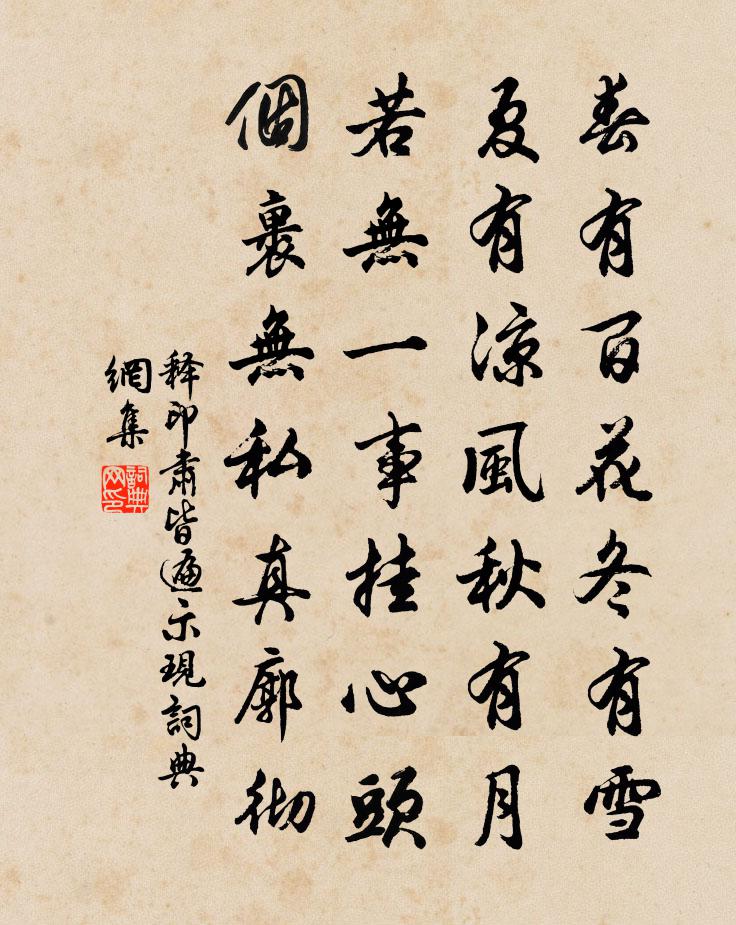 春有百花冬有雪
夏有凉風秋有月
若無一事挂心頭
個裏無私真廓彻
释印肅皆遍示現詞典
網集
詞典網印